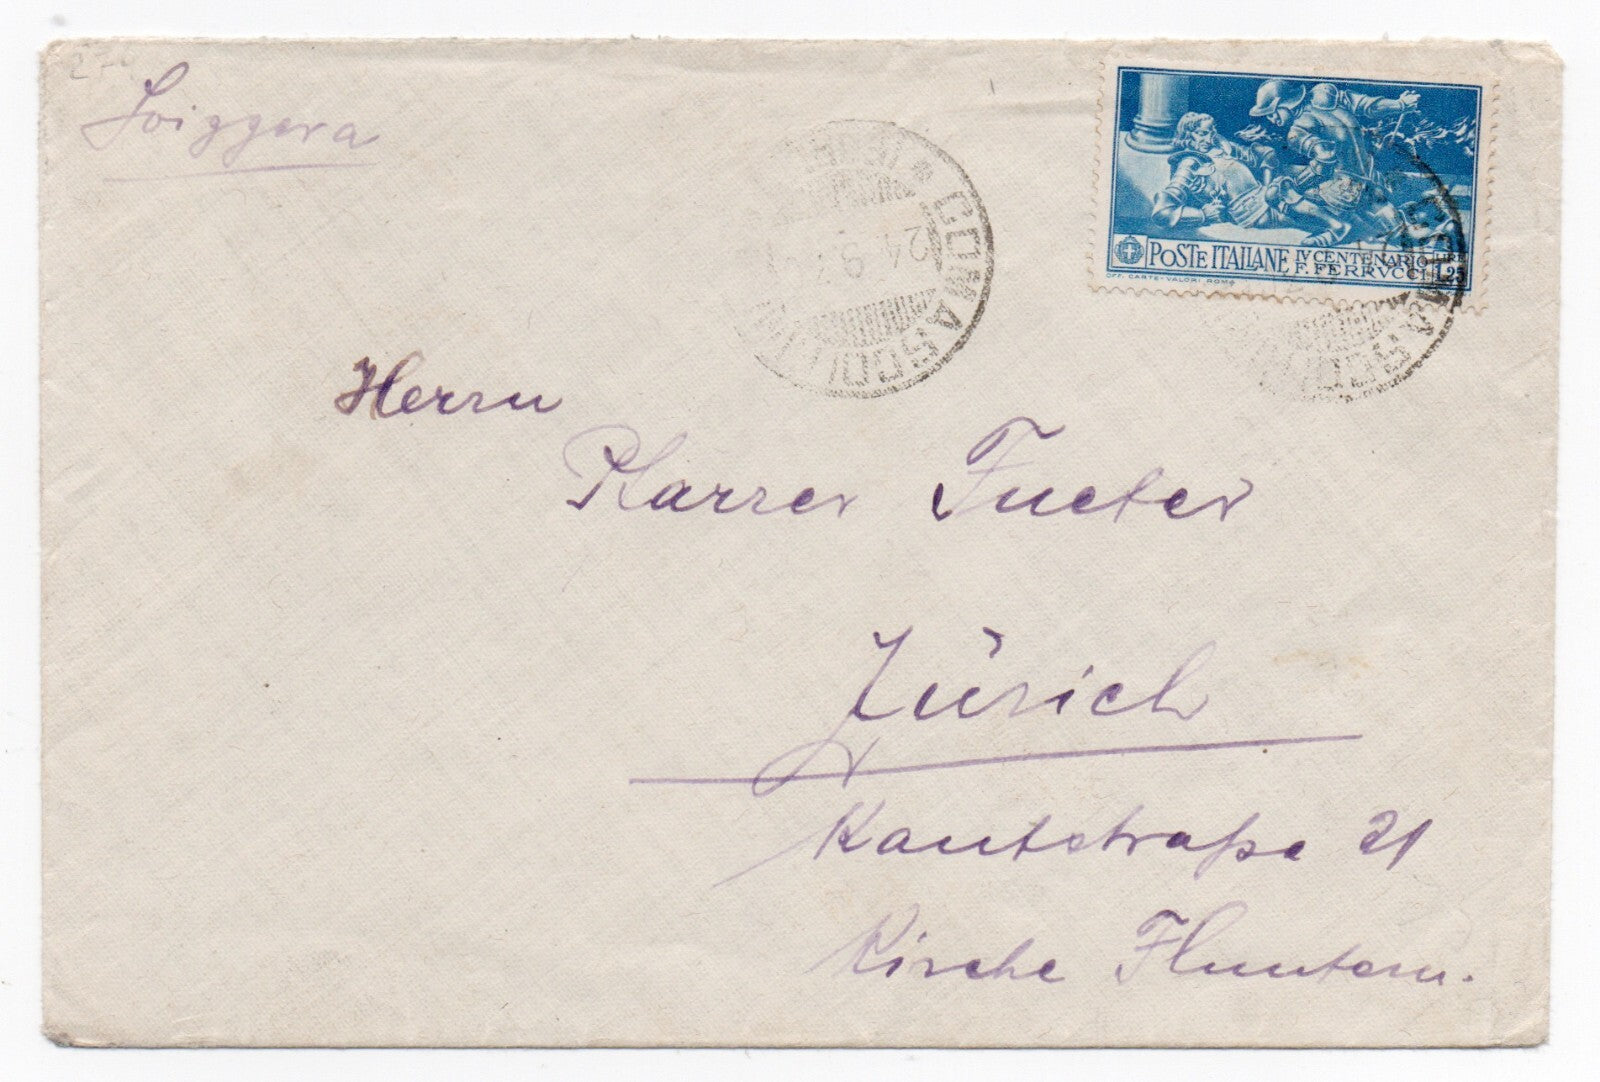 Svizzera
Herrn
Pfarrer Fueter
Zürich
Kantstraße 21
Kirche Fluntern.
POSTE ITALIANE IV CENTENARIO
F. FERRVCCI
LIRE 1,25
OFF. CARTE-VALORI ROMA
COMASCO
24 9 3
COMASCO